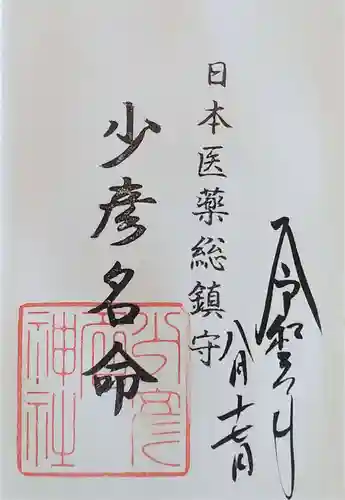 令和六年
八月十七日
日本医薬総鎮守
少彦名命
少彦
神社